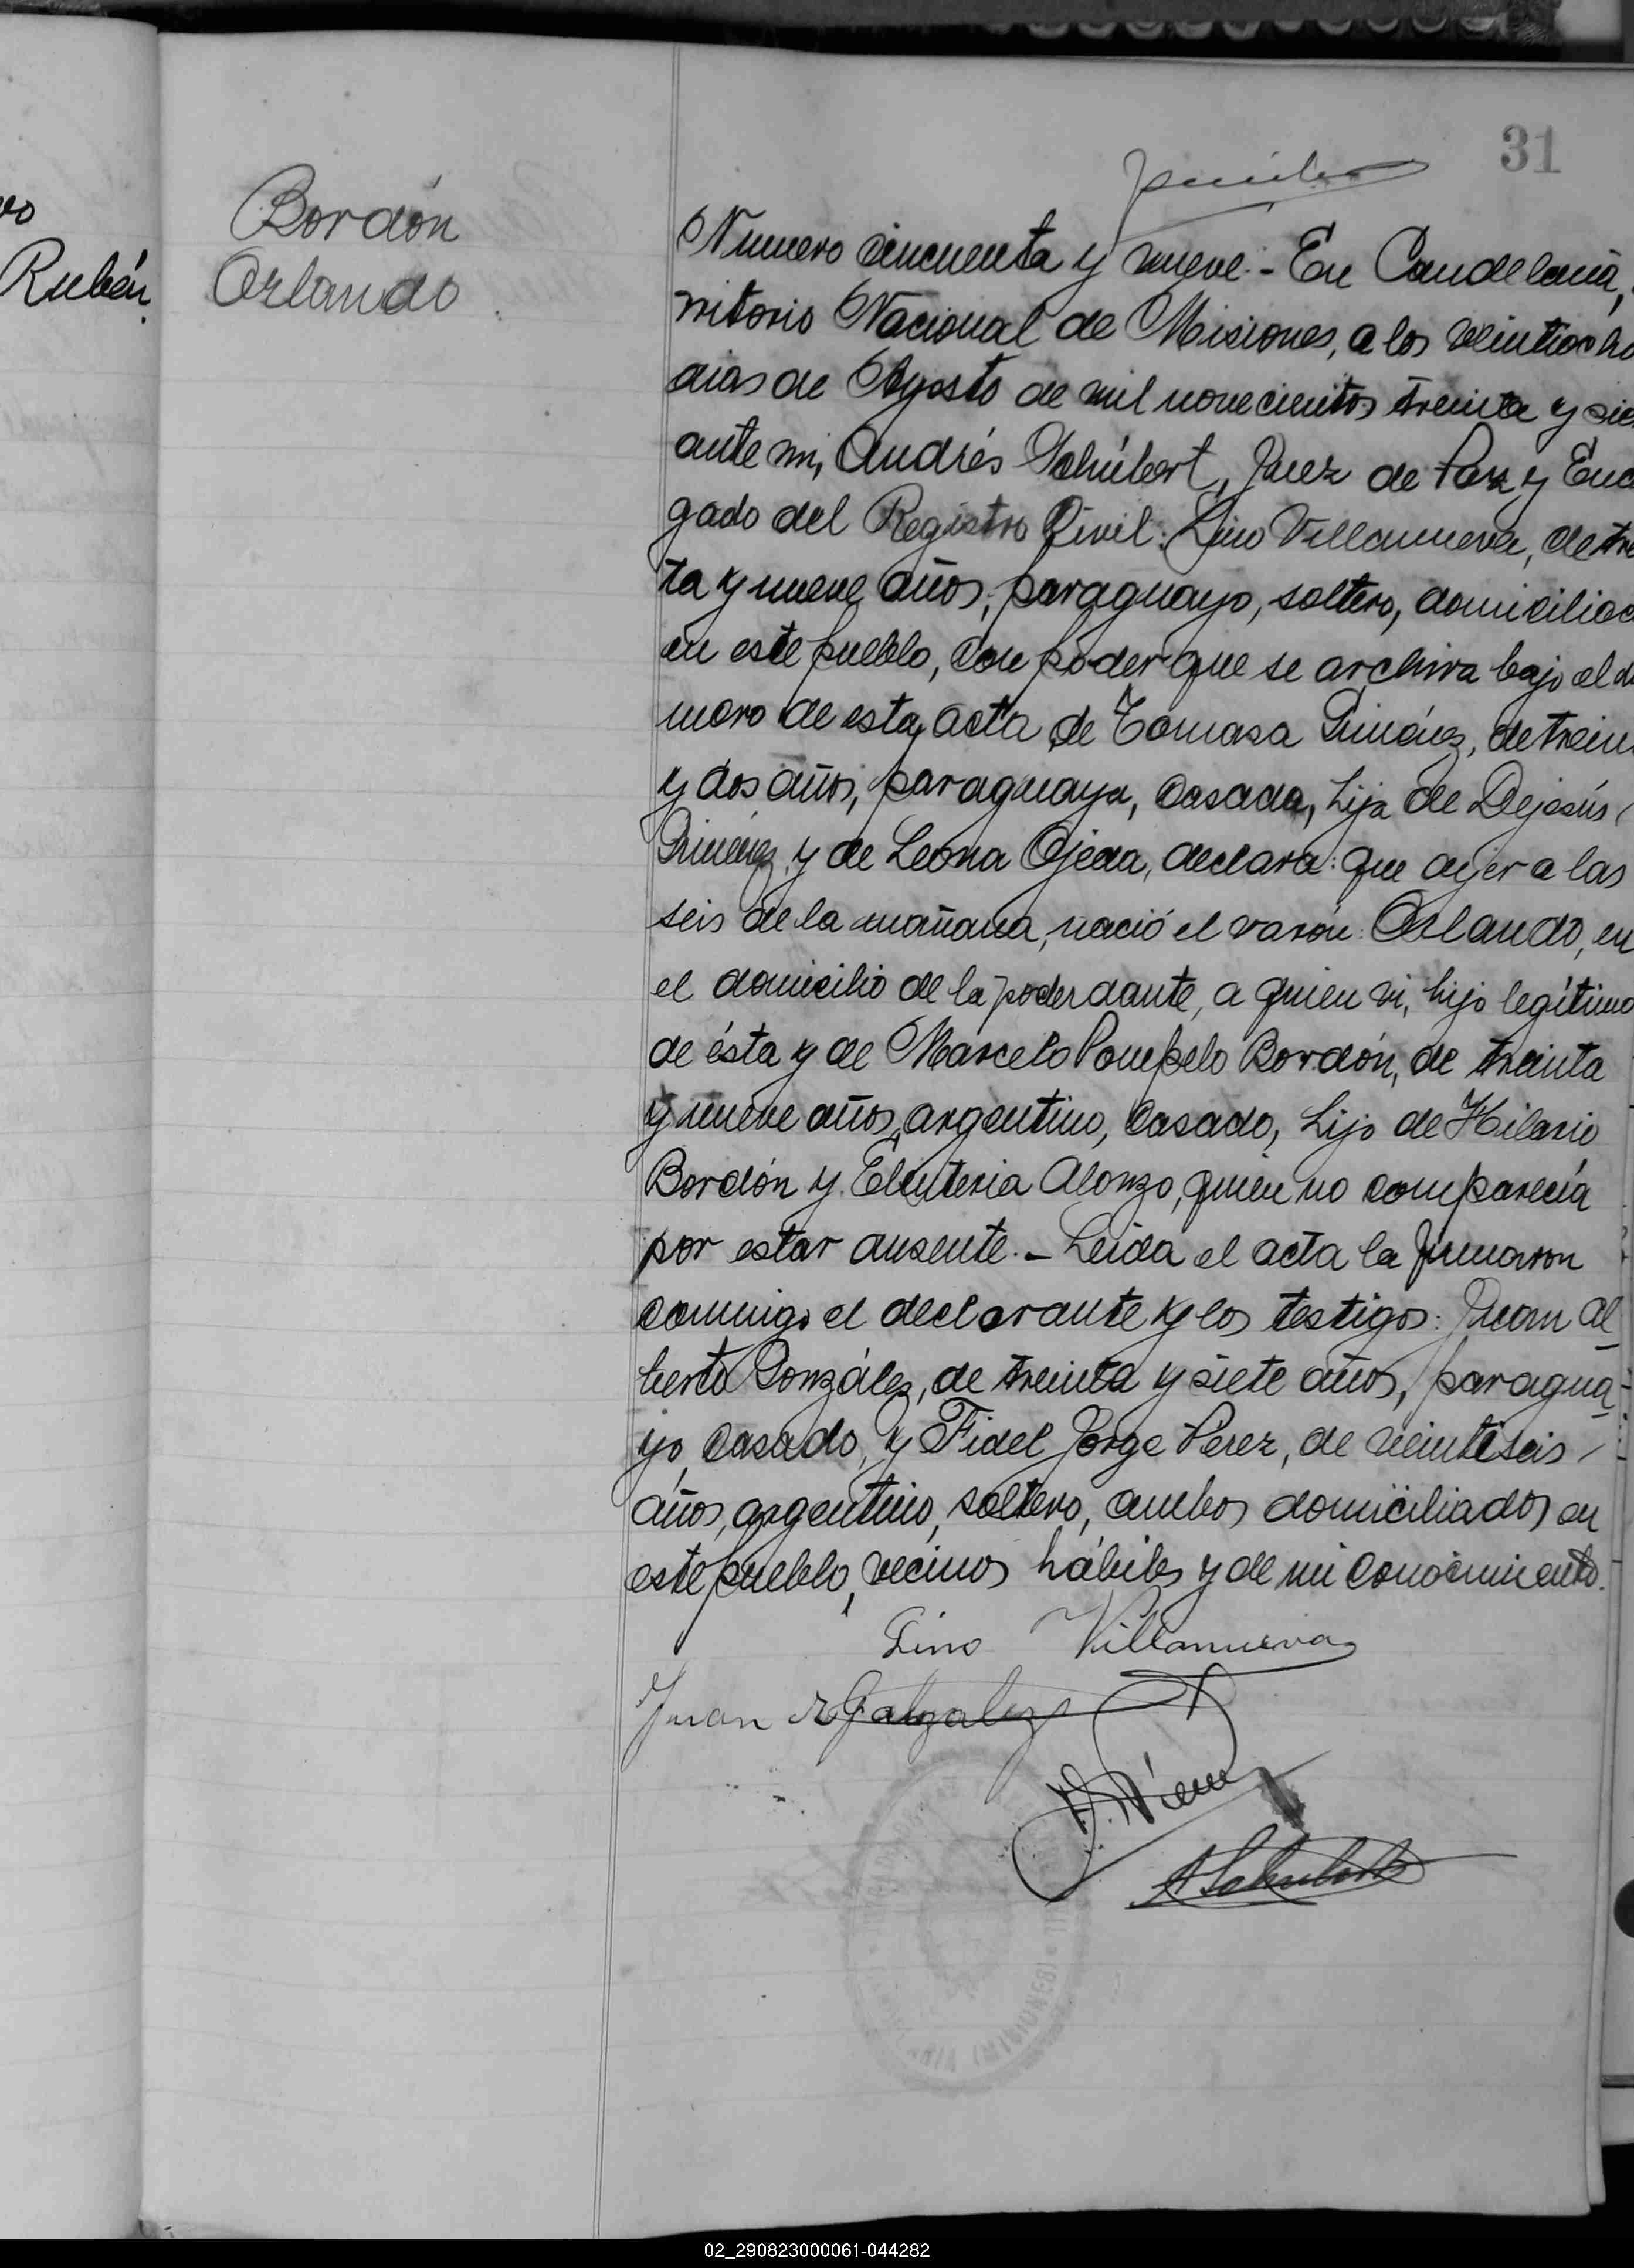 31
Rubén.
Bordón
Orlando.
Numero cincuenta y nueve.- En Candelaria,
rritorio Nacional de Misiones, a los veintiocho
dias de Agosto de mil novecientos treinta y sie
ante mi, Andrés Schúbert, Juez de Paz y Enca
gado del Registro Civil: Lino Villanueva, de tre
ta y nueve años, paraguayo, soltero, domiciliad
en este pueblo, con poder que se archiva bajo el
mero de esta acta de Tomasa Giménez, de trein
y dos años, paraguaya, casada, hija de Dejesús
Giménez y de Leona Ojeda, declara: que ayer a las
seis de la mañana, nació el varón: Orlando, en
el domicilio de la poderdante, a quien vi, hijo legítimo
de ésta y de Marcelo Pompelo Bordón, de treinta
y nueve años, argentino, casado, hijo de Hilario
Bordón y Eleuteria Alonzo, quien no comparecía
por estar ausente.- Leida el acta la firmaron
conmigo el declarante y los testigos: Juan Al
berto González, de treinta y siete años, paragua
yo, casado, y Fidel Jorge Perez, de veintiseis
años, argentino, soltero, ambos domiciliados en
este pueblo, vecinos hábiles y de mi conocimiento.
Lino Villanueva
Juan A Gonzalez
A Schubert
(MISIONES)
02_290823000061-044282